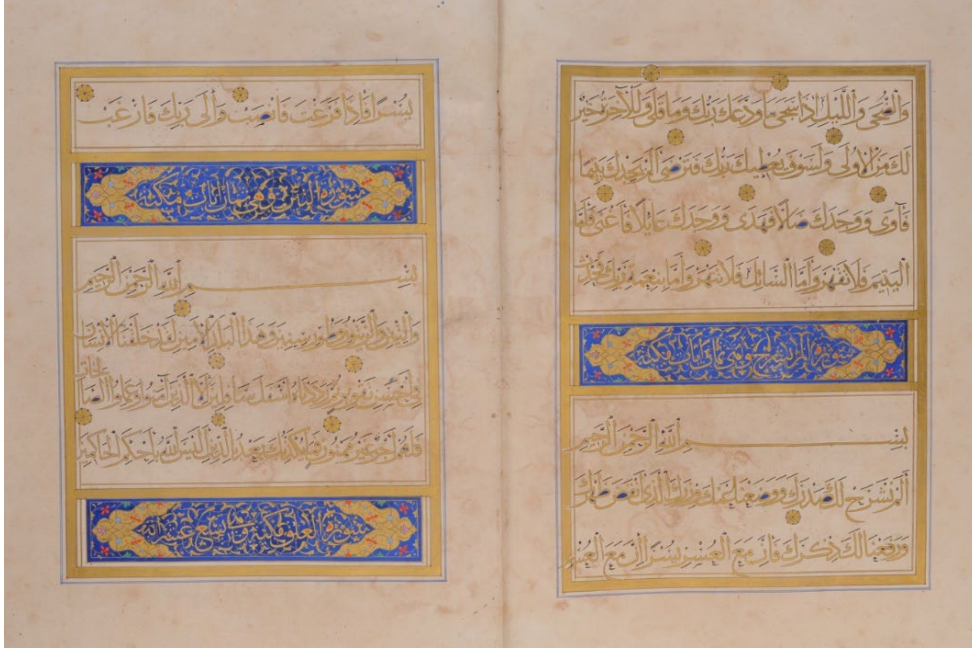 والضحى والليل إذا سجى ما ودعك ربك وما قلى وللآخرة خير
لك من الأولى ولسوف يعطيك ربك فترضى ألم يجدك يتيما
فآوى ووجدك ضالا فهدى ووجدك عايلا فأغنى فأما
اليتيم فلا تقهر وأما السائل فلا تنهر وأما بنعمة ربك فحدث
سورة ألم نشرح وهي ثمان آيات مكية
بسم الله الرحمن الرحيم
ألم نشرح لك صدرك ووضعنا عنك وزرك الذي أنقض ظهرك
ورفعنا لك ذكرك فإن مع العسر يسرا إن مع العسر
يسرا فإذا فرغت فانصب وإلى ربك فارغب
سورة التين وهي ثمان آيات مكية
بسم الله الرحمن الرحيم
والتين والزيتون وطور سينين وهذا البلد الأمين لقد خلقنا الإنسان
في أحسن تقويم ثم رددناه أسفل سافلين إلا الذين آمنوا وعملوا الصالحات
فلهم أجر غير ممنون فما يكذبك بعد بالدين أليس الله بأحكم الحاكمين
سورة العلق مكية وهي تسع عشر آية